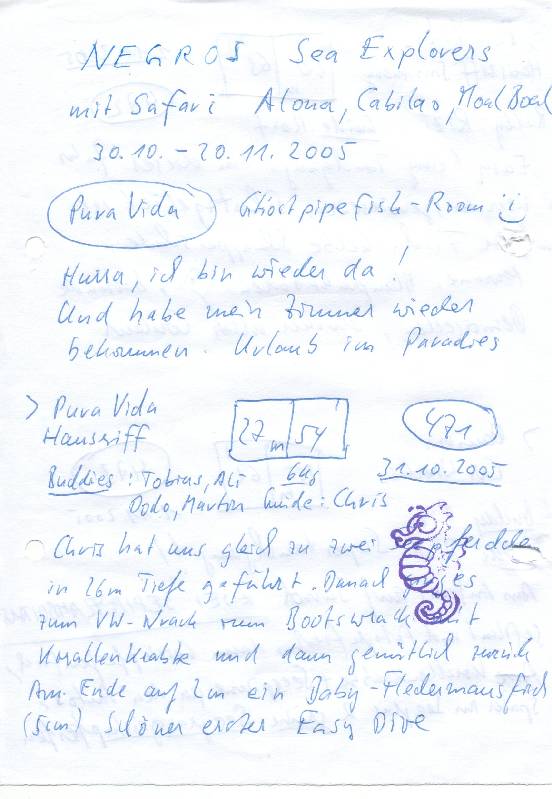 NEGROS Sea Explorers
mit Safari Alona, Cabilao, MoalBoal
30.10. – 20.11. 2005
Pura Vida Ghostpipefish-Room
Hurra, ich bin wieder da!
Und habe mein Zimmer wieder
bekommen. Urlaub im Paradies
> Pura Vida
Hausriff
27m 54
471
Buddies: Tobias, Ali
31.10.2005
Dodo, Martin Guide: Chris
Chris hat uns gleich zu zwei pferdche
in 26m Tiefe geführt. Danach ges
zum VW-Wrack zum Bootswrack mit
Korallenkrabbe und dann gemütlich zurück
Am Ende auf 2m ein Baby-Fledermausfisch
(5cm) Schöner erster Easy Dive